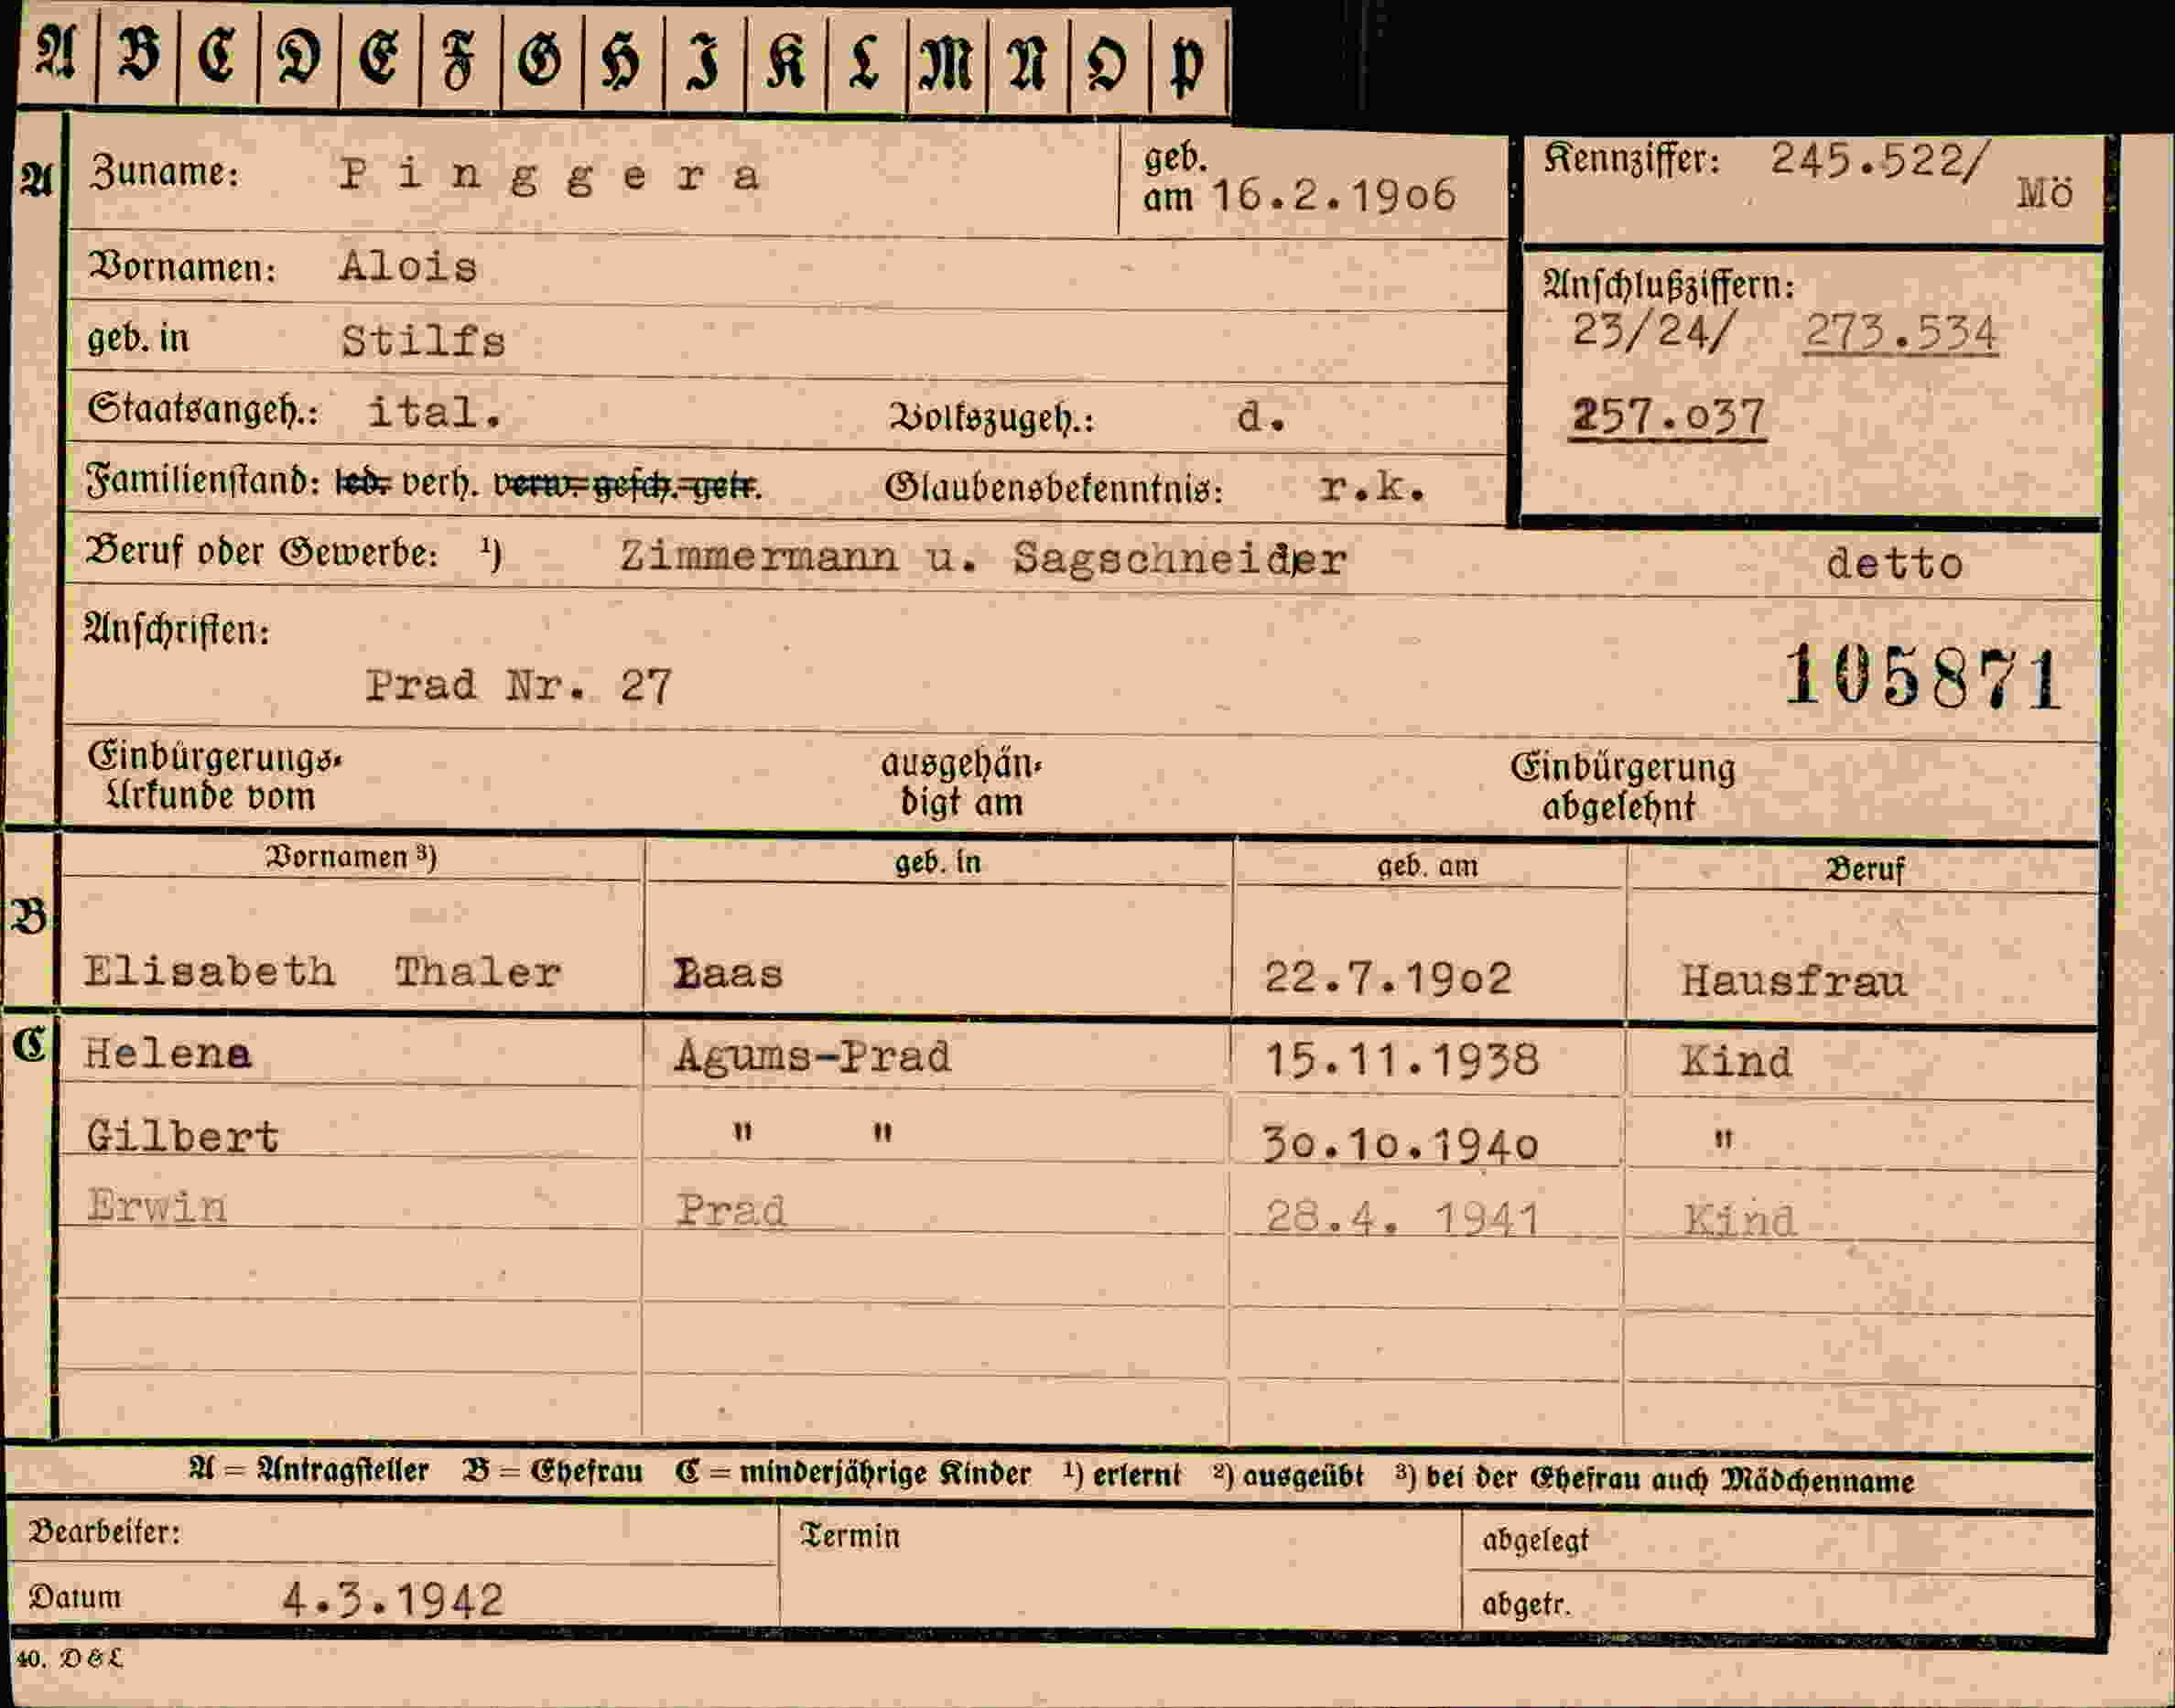 A B C D E F G H I K L M N O P
A Zuname: Pinggera geb. am 16.2.1906 Kennziffer: 245.522/ Mö
Vornamen: Alois
Anschlußziffern:
geb. in Stilfs 23/24/ 273.534
Staatsangeh.: ital. Volkszugeh.: d. 257.037
Familienstand: led. verh. verw. gesch. getr. Glaubensbekenntnis: r.k.
Beruf oder Gewerbe: ¹) Zimmermann u. Sagschneider detto
Anschriften:
Prad Nr. 27 105871
Einbürgerungs- ausgehän- Einbürgerung
Urkunde vom digt am abgelehnt
Vornamen ³) geb. in geb. am Beruf
B
Elisabeth Thaler Laas 22.7.1902 Hausfrau
C Helena Agums-Prad 15.11.1938 Kind
Gilbert " " 30.10.1940 "
Erwin Prad 28.4. 1941 Kind
A = Antragsteller B = Ehefrau C = minderjährige Kinder ¹) erlernt ²) ausgeübt ³) bei der Ehefrau auch Mädchenname
Bearbeiter: Termin abgelegt
Datum 4.3.1942 abgetr.
40. D & L